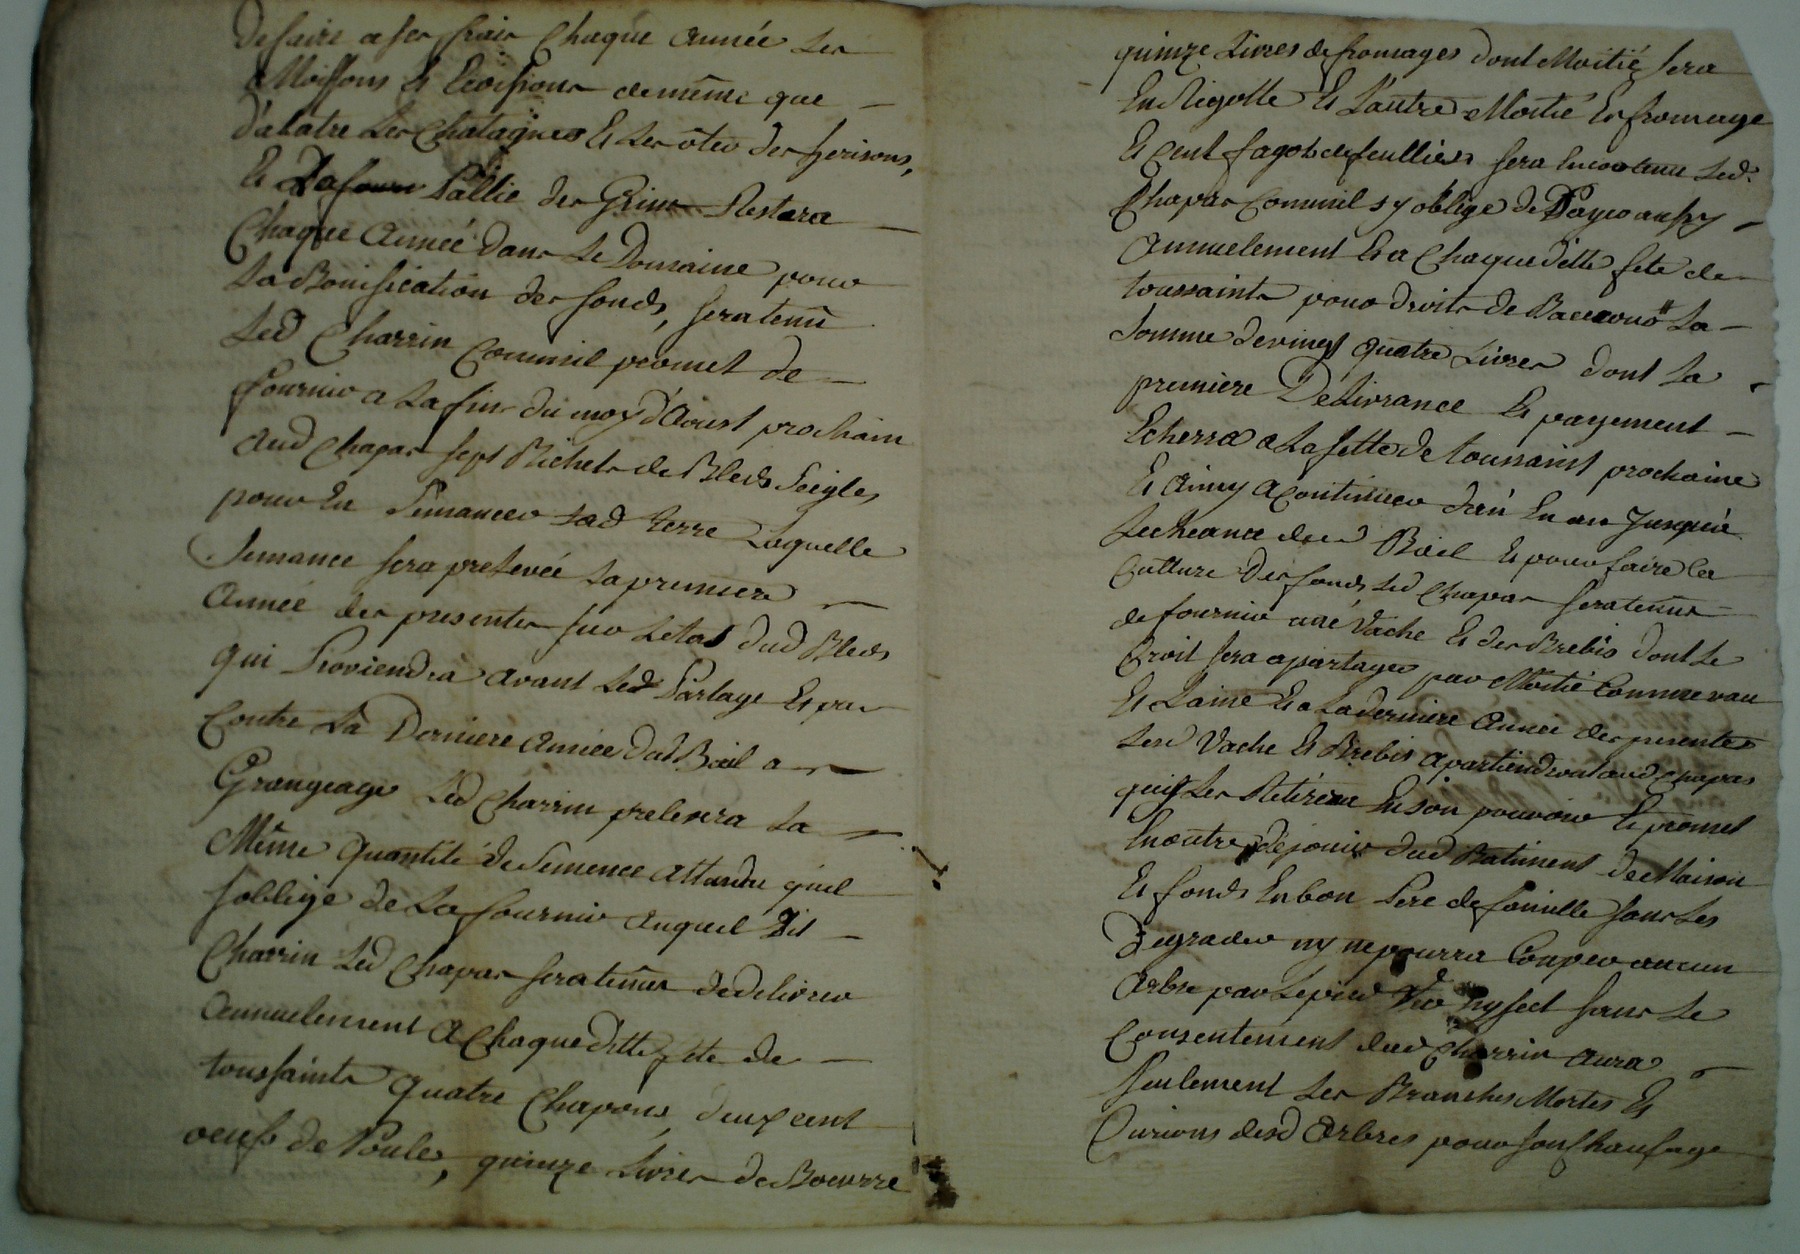 defaire a ses frais Chaque année Les
Moissons Et Ecossions demême que
d'abatre Les Chataignes Et Les ôter des herisons,
Et La Pallie des Grins Restera
Chaque Année dans Le Domaine pour
La Bonification des fonds, sera tenû
Led Charrin Comme il promet de
fournir a La fin du moy d'Aoust prochain
Aud Chapas sept Bichets de Bleds Seigles
pour En Semancer Lad terre Laquelle
Semance sera prelevée La premiere
Année des presentes sur Le tas dud Bleds
qui Proviendra avant Led Partage Et par
Contre La Derniere Année dud Bail a
Grangeage Led Charrin prelevera La
Même Quantité de Semence attandu quil
soblige de La fournir auquel dit
Charrin Led Chapas sera tenus de delivrer
Annuelement a Chaque ditte fete de
toussaints Quatre Chapons, deux cent
oeufs de Poules, quinze Livres de Beurre
quinze Livres de fromages dont Moitié sera
En Rigotte Et L'autre Moitié En fromage
Et cent fagots de feullies sera Encor tenu Led.
Chapas Comme il s'y oblige de Payer aussy
Annuelement Et a Chaque ditte fete de
toussaints pour droits de Bassecour La
somme de vingt quatre Livres dont La
premiere Delivrance Et payement
Echerra a La fette de toussaint prochaine
Et Ainsy a Continuer d'an En an Jusqu'a
Lecheance dud Bail Et pour faire la
Culture des fonds Led Chapas sera tenus
de fournir une Vache Et des Brebis dont Le
Croit sera a partager par Moitié Comme vau
Et Laine Et a La derniere Année des presentes
Les Vache Et Brebis apartiendront aud Chapas
qui Les Retirera En son pouvoir Et promet
En outre de jouir dud Batiment de Maison
Et fonds En bon Pere de famille sans Les
Degrader ny ne pourra Couper aucun
Arbre par Le pied Vert ny sect sans Le
Consentement dud Charrin aura
seulement Les Branches Mortes Et
Curions desd Arbres pour son chaufage